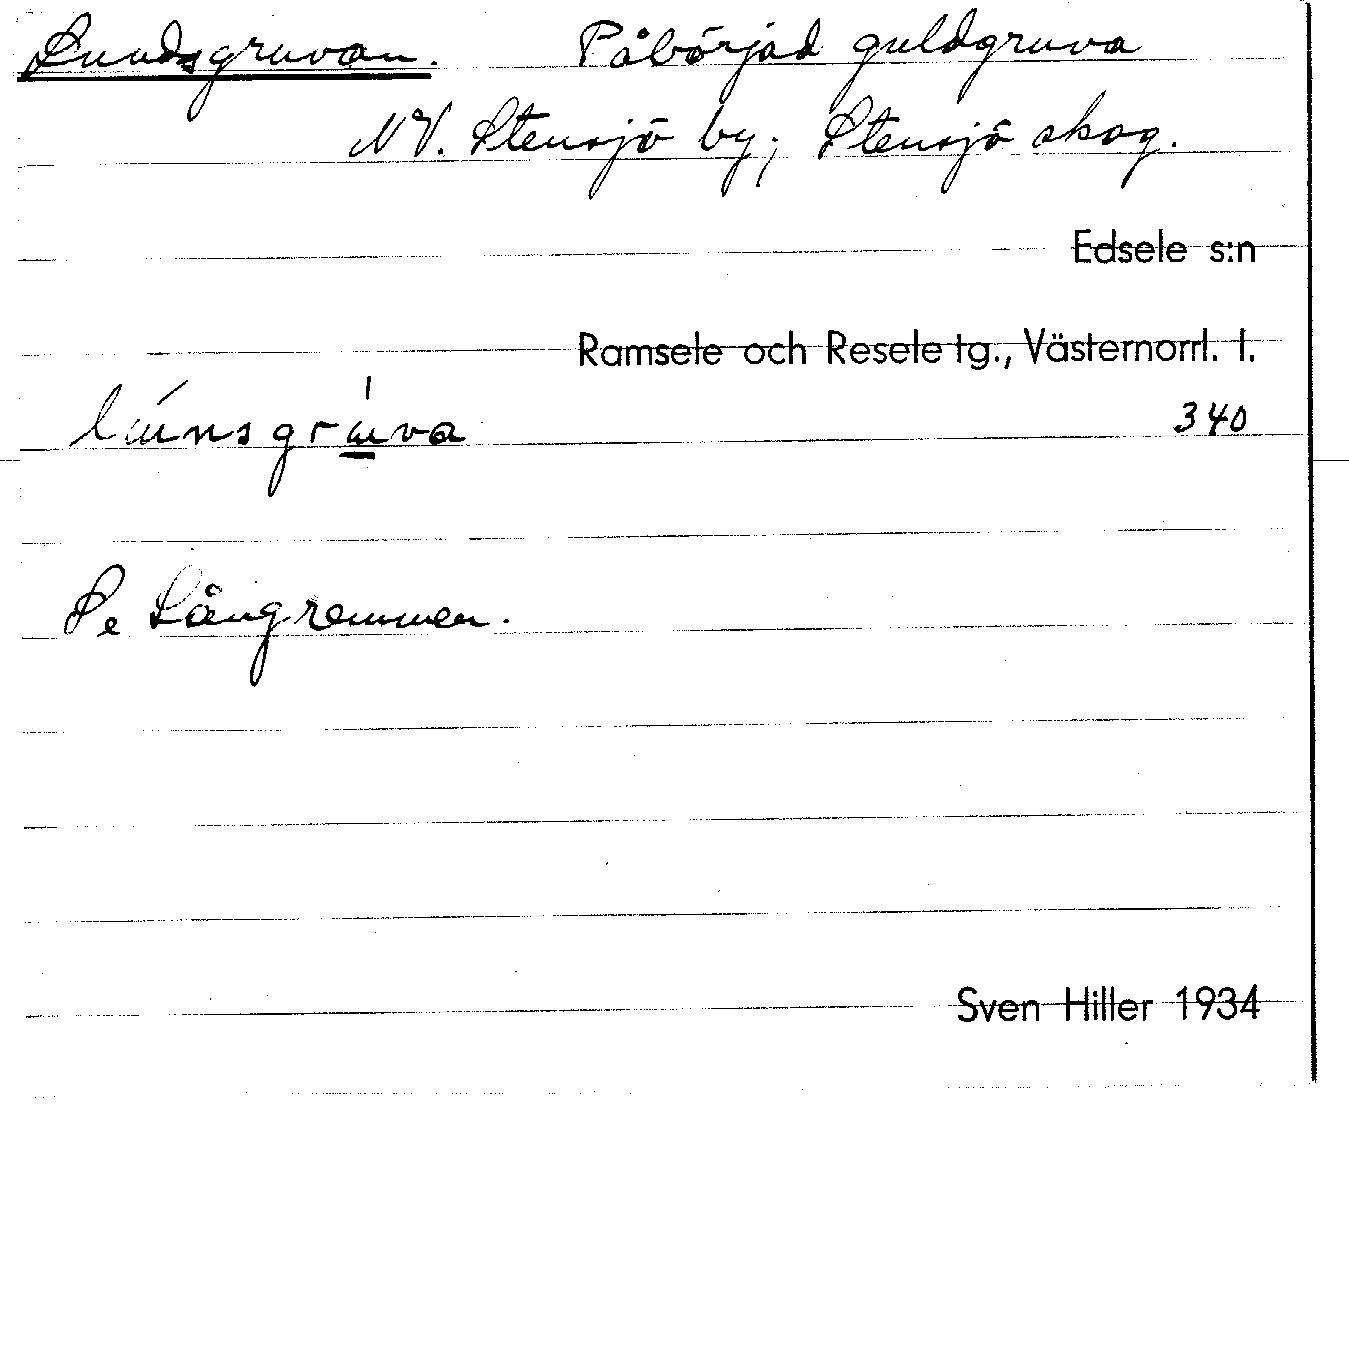 Lundsgruvan. Påbörjad guldgruva
NV. Stensjö by; Stensjö skog.
Edsele s:n
Ramsele och Resele tg., Västernorrl. l.
340
Se Långremmen.
Sven Hiller 1934